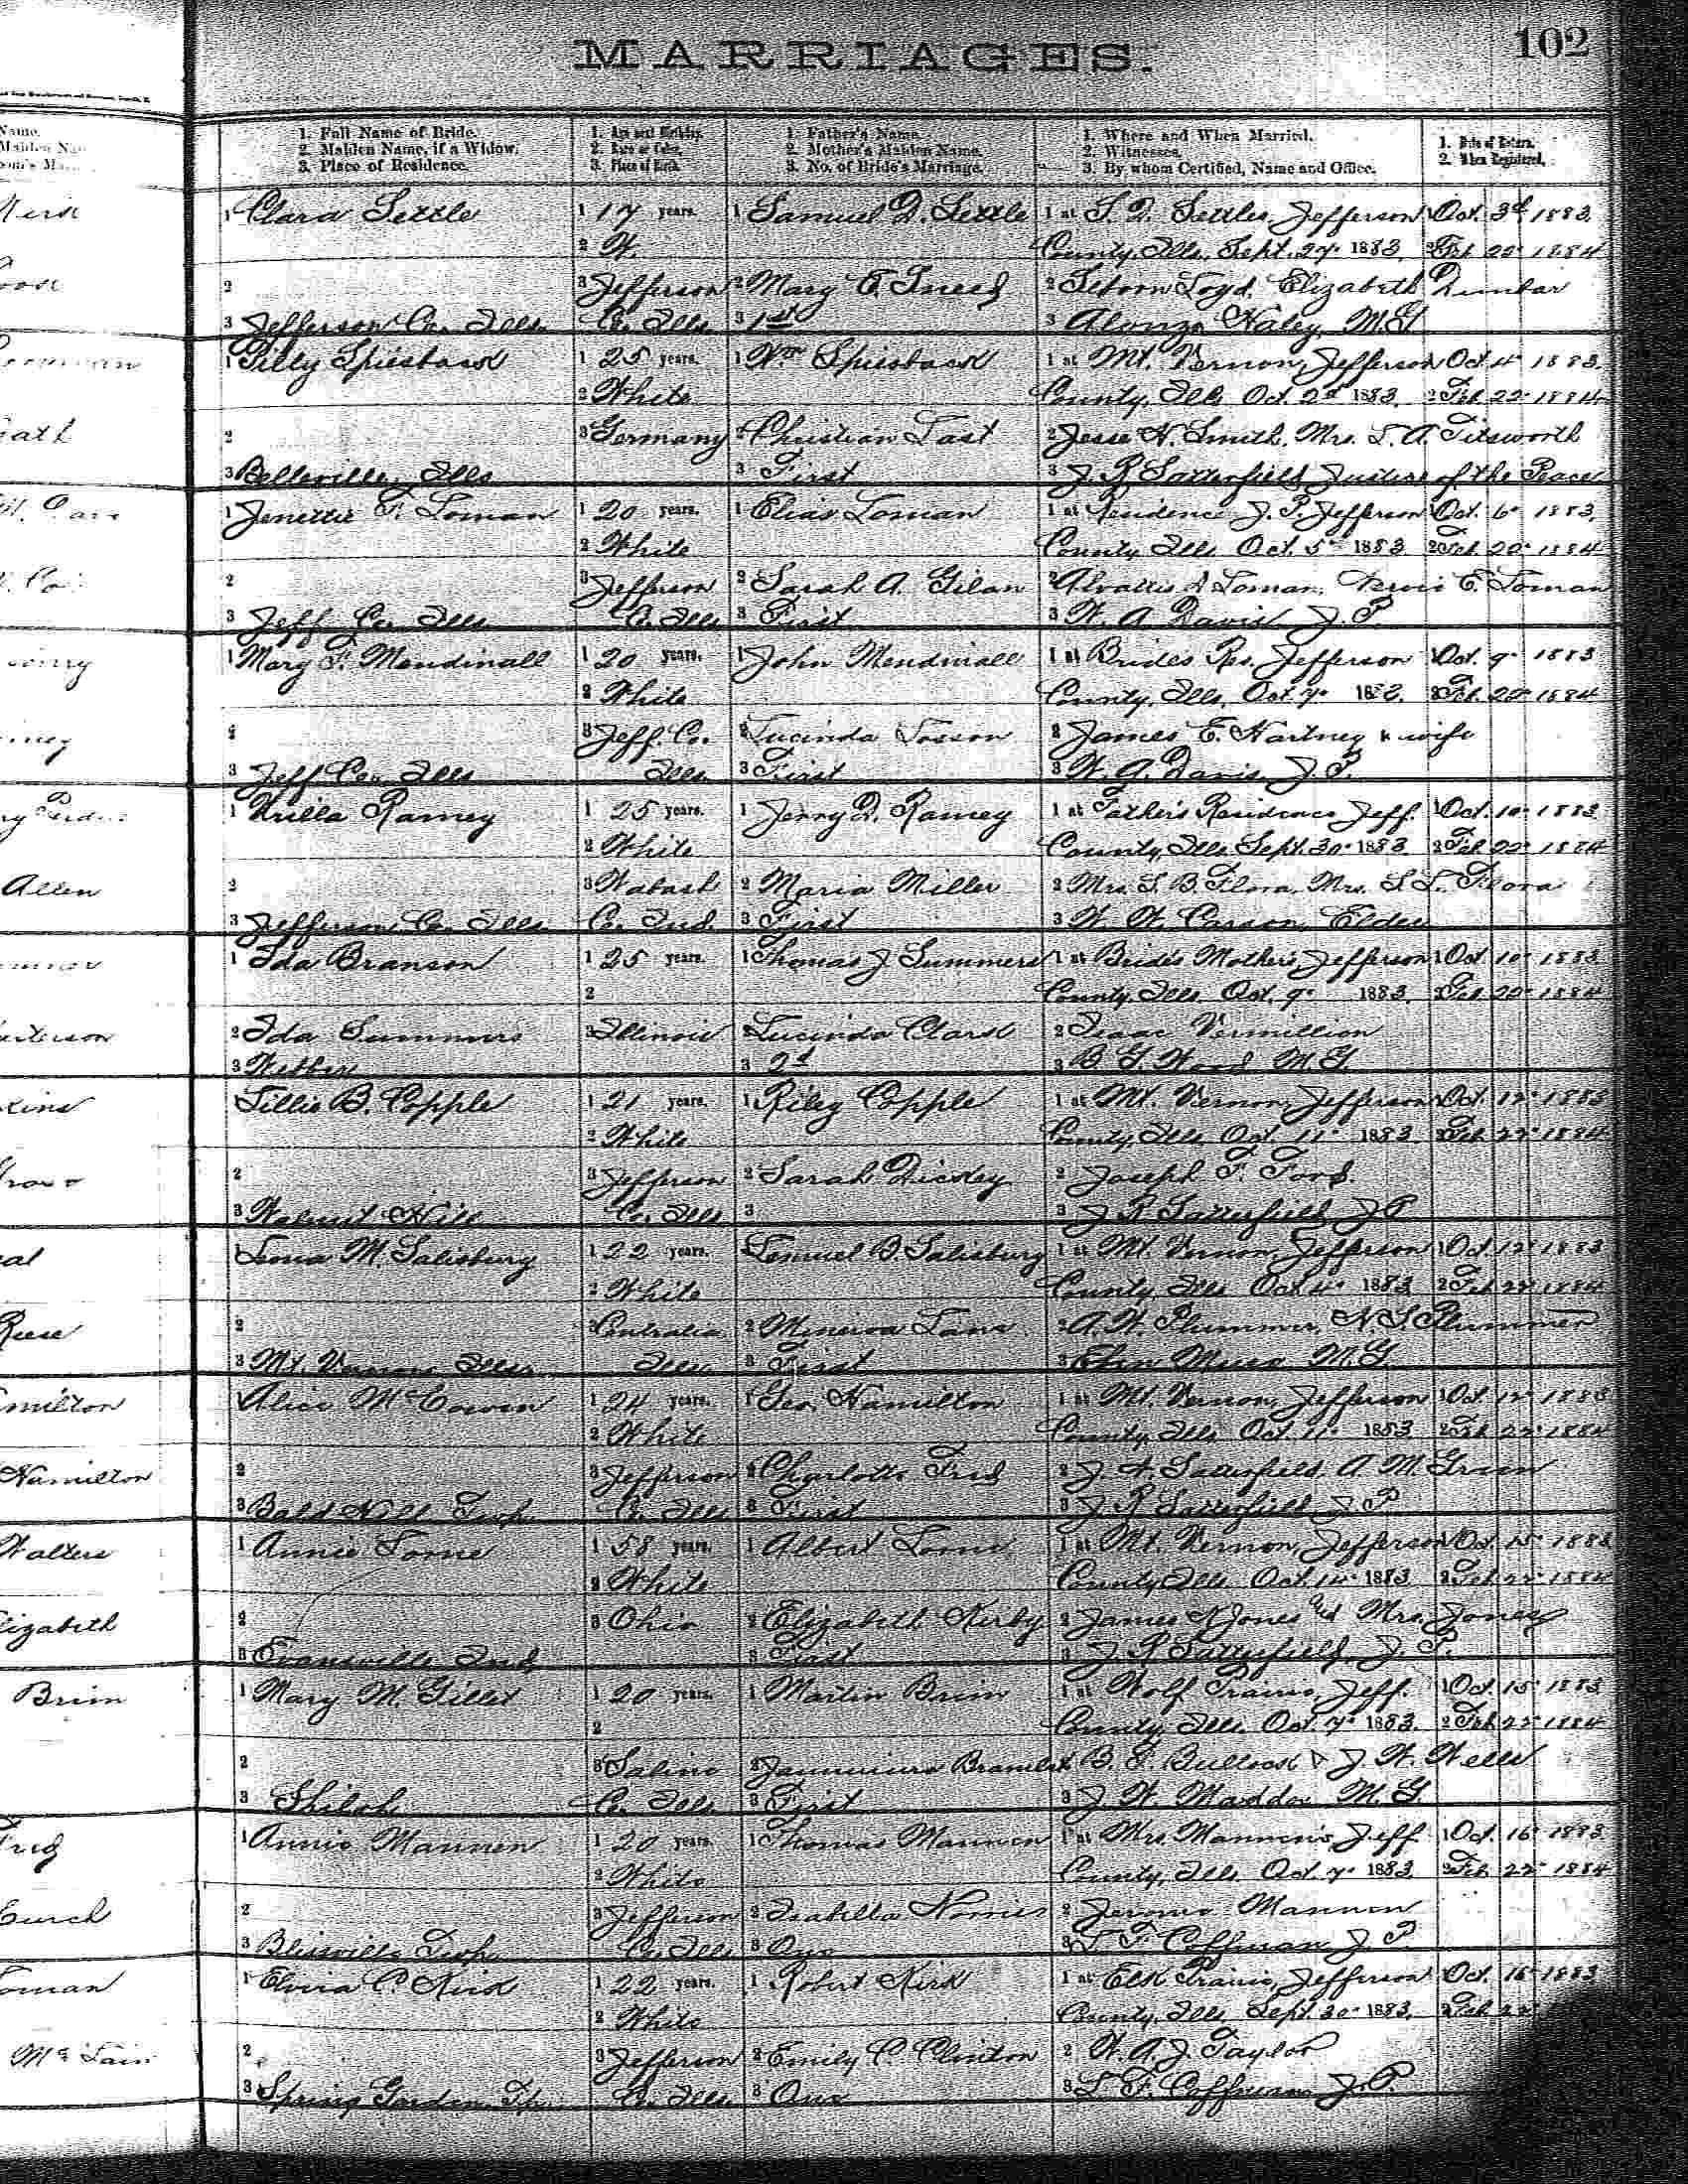 MARRIAGES.
102
1. Full Name of Bride. 1. Age next Birthday. 1. Father's Name. 1. Where and When Married. 1. Date of Return.
2. Maiden Name, if a Widow. 2. Race or Color. 2. Mother's Maiden Name. 2. Witnesses. 2. When Registered.
3. Place of Residence. 3. Place of Birth. 3. No. of Bride's Marriage. 3. By whom Certified, Name and Office.
1 Clara Settle 1 17 years. 1 Samuel D. Settle 1 at S. D. Settles, Jefferson 1 Oct. 3d 1883.
2 W. County, Ills. Sept. 27 1883. 2 Feb. 22 1884
2 3 Jefferson 2 Mary E. Sneed 2 Seborn Loyd. Elizabeth Dunbar
3 Jefferson Co. Ills. Co. Ills 3 1st 3 Alonzo Haley M.G
1 Tilly Spiesback 1 25 years. 1 Wm Spiesback 1 at Mt. Vernon, Jefferson 1 Oct. 4 1883.
2 White County, Ills. Oct. 2d 1883. 2 Feb. 22 1884
2 3 Germany 2 Christian Last 2 Jesse H. Smith. Mrs. L. A. Titsworth
3 Belleville, Ills 3 First 3 J. R. Satterfield Justice of the Peace
1 Jenettie F. Loman 1 20 years. 1 Elias Loman 1 at Residence J. P. Jefferson 1 Oct. 6 1883.
2 White County, Ills. Oct. 5 1883. 2 Feb. 22 1884
2 3 Jefferson 2 Sarah A. Gilan 2 A. Loman. E. Loman
3 Jeff Co. Ills Co. Ills 3 First 3 W. A. Davis J. P
1 Mary F. Mendinall 1 20 years. 1 John Mendinall 1 at Brides Res. Jefferson 1 Oct. 9 1883
2 White County, Ills. Oct. 7 1883. 2 Feb. 22 1884
2 3 Jeff. Co. 2 Lucinda 2 James E. Hartney & wife
3 Jeff Co. Ills Ills. 3 First 3 W. A. Davis J. P.
1 Urilla Ramey 1 25 years. 1 Jerry D. Ramey 1 at Father's Residence Jeff. 1 Oct. 10 1883.
2 White County, Ills Sept. 30 1883. 2 Feb. 22 1884
2 3 Wabash 2 Maria Miller 2 Mrs. S. B. Flora, Mrs. S. L. Flora
3 Jefferson Co. Ills. Co. Ind. 3 First 3 W. W. Carson, Elder
1 Ida Branson 1 25 years. 1 Thomas J Summers 1 at Brides Mothers, Jefferson 1 Oct. 10 1883
2 County, Ills. Oct. 9 1883. 2 Feb. 22 1884
2 Ida Summers 3 Illinois 2 Lucinda Clark 2 Isaac Vermillion
3 3 2d 3 B. G. Wood M. G.
Tillie B. Copple 1 21 years. 1 Riley Copple 1 at Mt. Vernon, Jefferson 1 Oct. 12 1883
2 White County, Ills. Oct. 11 1883. 2 Feb. 22 1884
2 3 Jefferson 2 Sarah Dickey 2 Joseph F. Ford
3 Walnut Hill Co. Ills 3 3 J R Satterfield J P
1 Lona M. Salisbury 1 22 years. 1 Lemuel B. Salisbury 1 at Mt. Vernon, Jefferson 1 Oct. 12 1883
2 White County, Ills Oct. 4 1883 2 Feb. 22 1884
2 3 Centralia 2 Minerva Lane 2 A. W. Plummer, N. S. Plummer
3 Mt. Vernon Ills. Ills. 3 First 3 M. G
Alice McCowen 1 24 years. 1 Geo. Hamilton 1 at Mt. Vernon, Jefferson 1 Oct. 12 1883
2 White County, Ills. Oct. 11 1883 2 Feb. 22 1884
2 3 Jefferson 2 Charlotte Frid 2 J. A. Satterfield, A. M. Green
3 Bald Hill Twp. Co. Ills 3 First 3 J. R. Satterfield J. P
1 Annie Lorne 1 58 years. 1 Albert Lorne 1 at Mt. Vernon, Jefferson 1 Oct. 15 1883
2 White County, Ills. Oct. 14 1883 2 Feb. 22 1884
2 3 Ohio 2 Elizabeth Kirby 2 James N Jones and Mrs. Jones
3 Evansville Ind 3 First 3 J. R. Satterfield, J. P.
1 Mary M. Gillet 1 20 years. 1 Martin Brim 1 at Wolf Prairie, Jeff. 1 Oct. 15 1883
2 County, Ills. Oct. 7 1883. 2 Feb. 22 1884
2 3 Saline 2 Bramlet 2 B. F. Bullock & J. W. Wells
3 Shiloh Co. Ills. 3 First 3 J. W. Maddox M. G
1 Annie Mannen 1 20 years. 1 Thomas Mannen 1 at Mrs. Mannen's, Jeff 1 Oct. 16 1883.
2 White County, Ills. Oct. 7 1883 2 Feb. 22 1884
2 3 Jefferson 2 Isabella Norris 2 Jerome Mannen
3 Blissville Twp. Co. Ills 3 One 3 L. F. Coffman J. P.
1 Elvira C. Kirk 1 22 years. 1 Robert Kirk 1 at Elk Prairie, Jefferson Oct. 16 1883
2 White County, Ills. Sept. 30 1883. 2 Feb. 22
2 3 Jefferson 2 Emily C. Clinton 2 W. A. J. Taylor
3 Spring Garden Tp. Co. Ills. 3 One 3 L. F. Coffman J. P.